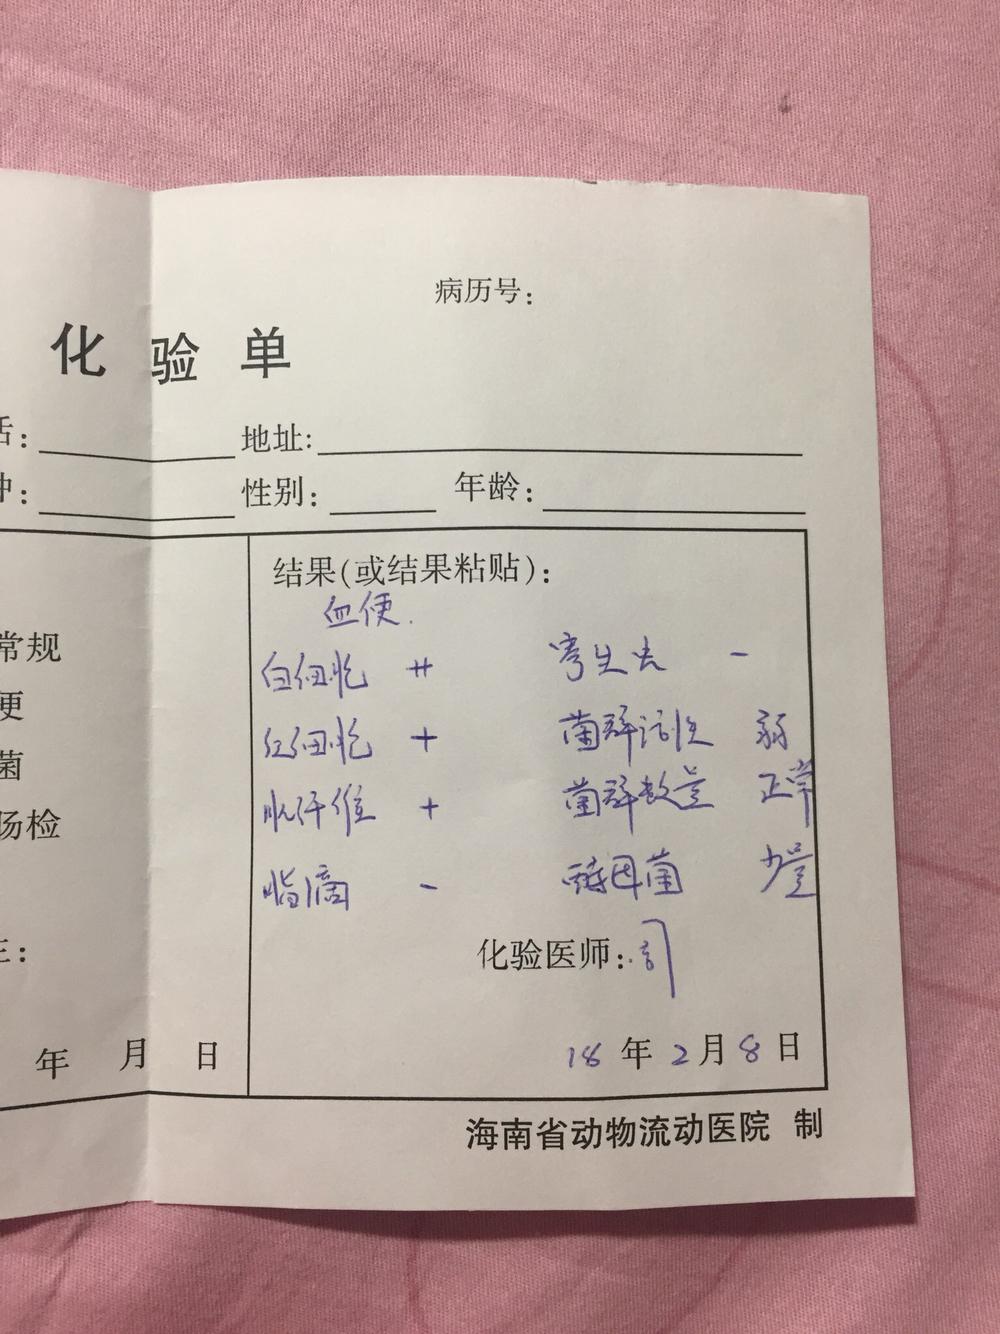 病历号：
化验单
话：地址：
种：性别：年龄：
结果（或结果粘贴）：
血便.
常规
白细胞 ++ 寄生虫 -
便
红细胞 + 菌群活性 弱
菌
肌纤维 + 菌群数量 正常
肠检
脂滴 - 菌 少量
化验医师：
年 月 日
18年2月8日
海南省动物流动医院 制